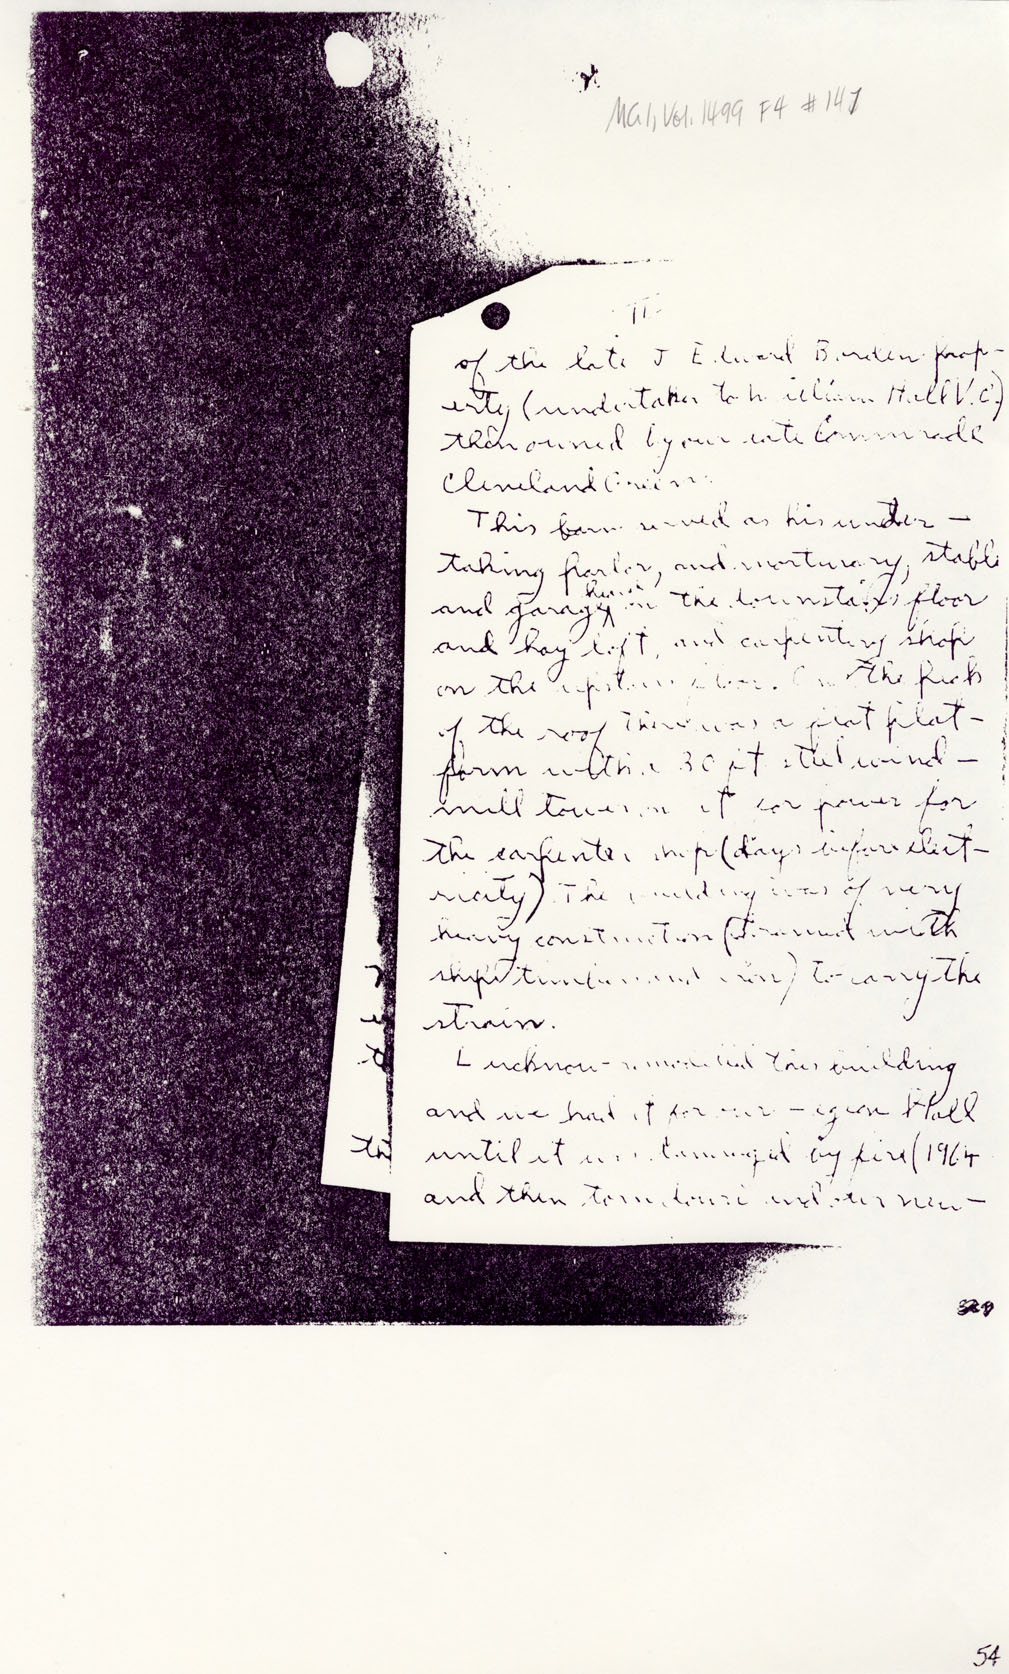 MG1, Vol. 1499 F4 #147
II
of the late J Edward Borden prop-
erty (undertaker to William Hall V.C.)
then owned by our late Commrade
Cleveland Green.
This barn served as his under-
taking parlor, and morturary, stable
and garage on the downstairs floor
and hay loft, and carpenters shop
on the upstairs floor. On the peak
of the roof There was a flat
form with a 30 ft steel wind-
mill tower on it for power for
the carpenter shop (days before elect-
ricity) The building was of very
heavy construction (framed with
ships timber and iron) to carry the
strain.
Lucknow remodeled this building
and we had it for our Legion Hall
until it was damaged by fire (1964
and then torn down and our new-
th
54